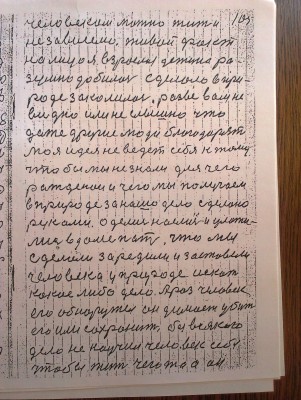 105
человеком можно жити
независемо, живой факт
на лицо я взрослая детина ра-
зумно добилас сделало в при-
роде законных, разве вам не
видно или не слышно что
даже другие люди благодарят
моя идея не ведет себя к тому
что бы мы не знали для чего
рождении и чего мы получаем
в природе за наше дело сделано
руками. Одели насмей и
лиш в дом спать, что мы
сделали зародили и заставили
человека у природе искат
какое либо дело. А раз человек
его обнаружил он думает убит
его или сохранит, бы всякого
дело не научил человек себе
чтобы жит чего то а он